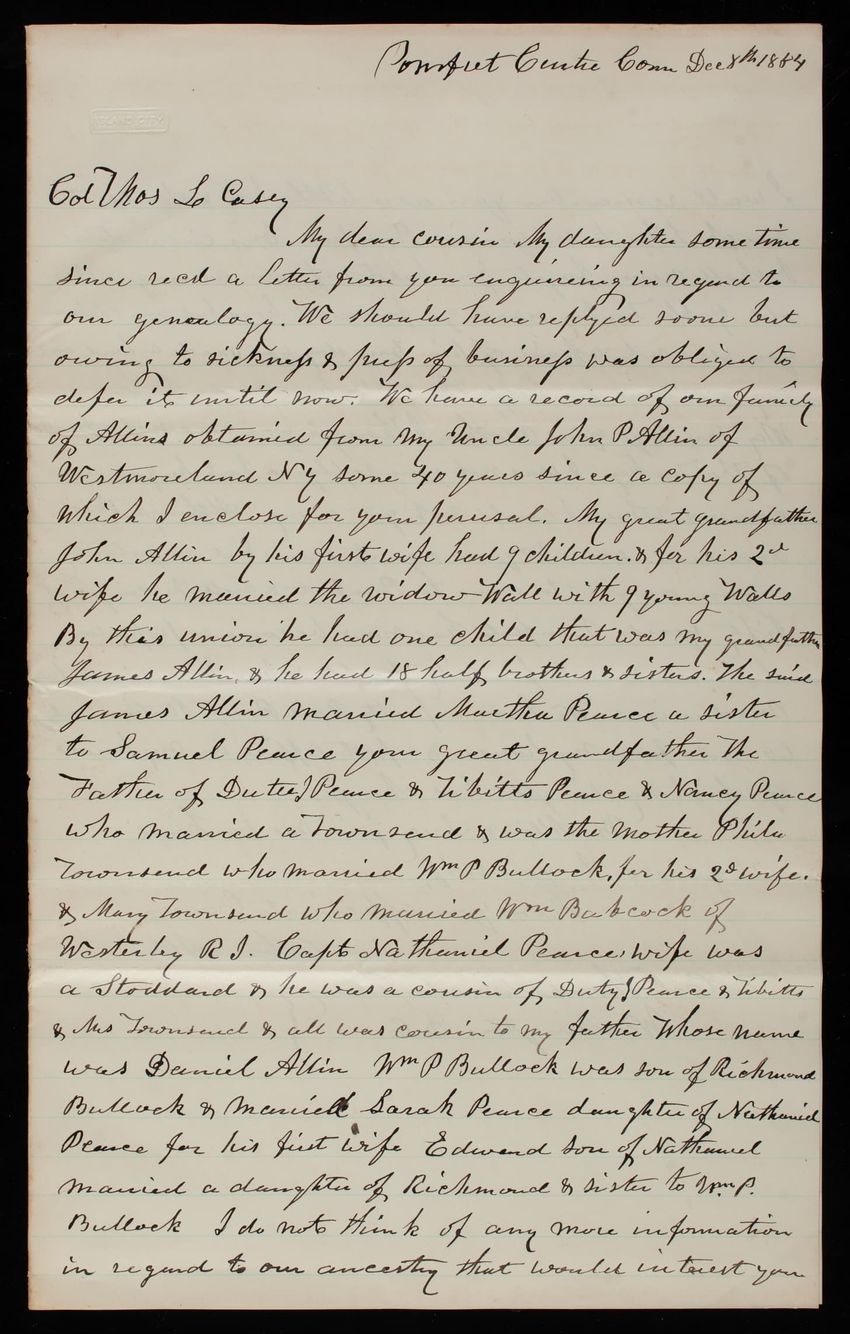 Pomfret Centre Conn Dec 8th 1884
ISLAND CITY
Col Thos L Casey
My dear cousin My daughter some time
since recd a letter from you enquireing in regard to
our genealogy. We should have replyed soone but
owing to sickness & press of business was obliged to
defer it until now. We have a record of our family
of Allins obtained from my Uncle John P Allin of
Westmoreland N Y some 40 years since a copy of
which I enclose for your perusal. My great grandfather
John Allin by his first wife had 9 children. & for his 2d
wife he married the widow Wall with 9 young Walls
By this union he had one child that was my grandfather
James Allin, & he had 18 half brothers & sisters. The said
James Allin married Martha Pearce a sister
to Samuel Pearce your great grandfather The
Father of Dutee J Pearce & Tibitts Pearce & Nancy Pearce
who married a Townsend & was the mother Phila
Townsend who married Wm P Bullock, for his 2d wife.
& Mary Townsend who married Wm Babcock of
Westerley R I. Capt Nathaniel Pearce, wife was
a Stoddard & he was a cousin of Duty J Pearce & Tibitts
& Mrs Townsend & all was cousin to my father Whose name
was Daniel Allin Wm P Bullock was son of Richmond
Bullock & married Sarah Pearce daughter of Nathaniel
Pearce for his first wife Edward son of Nathaniel
married a daughter of Richmond & sister to Wm P.
Bullock I do not think of any more information
in regard to our ancestry that would interest you